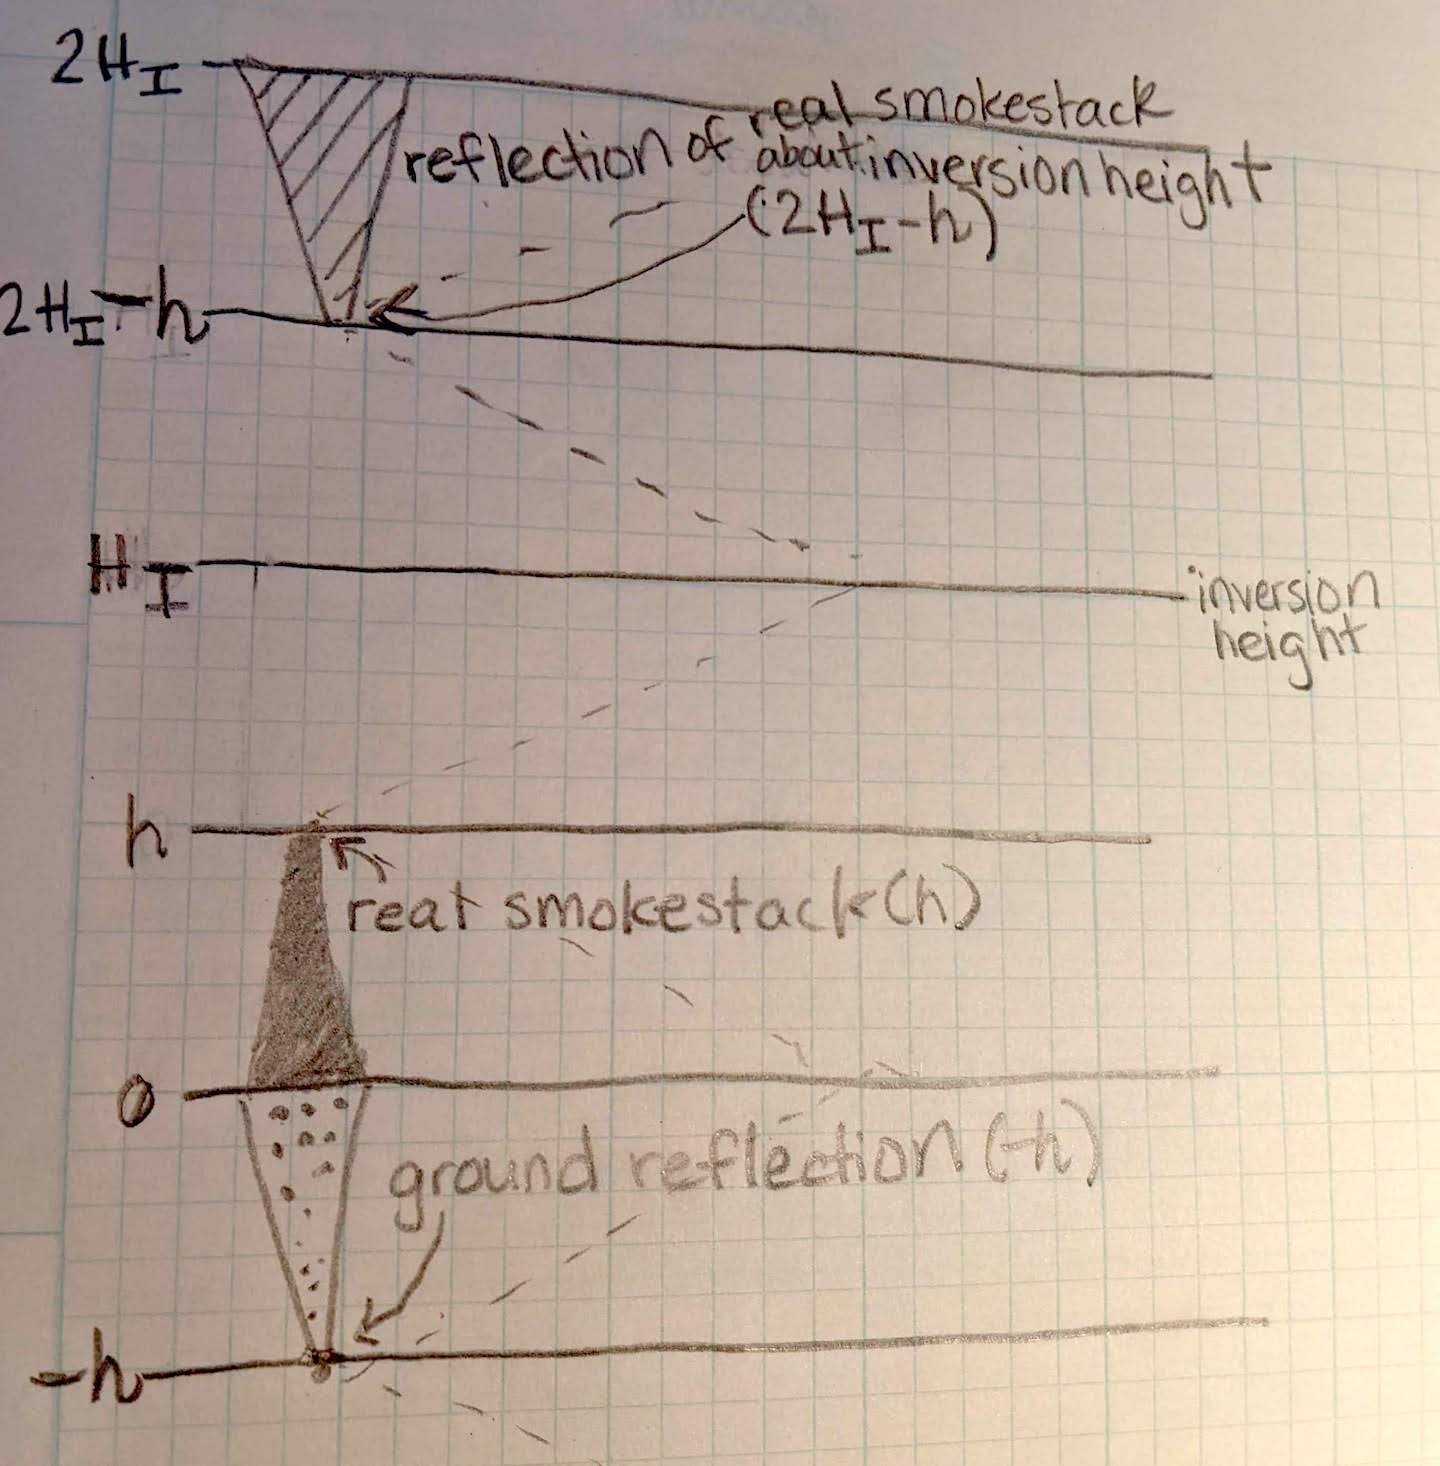 2H_I
real smokestack
reflection of about inversion height
(2H_I-h)
2H_I-h
H_I
inversion
height
h
real smokestack (h)
0
ground reflection (-h)
-h